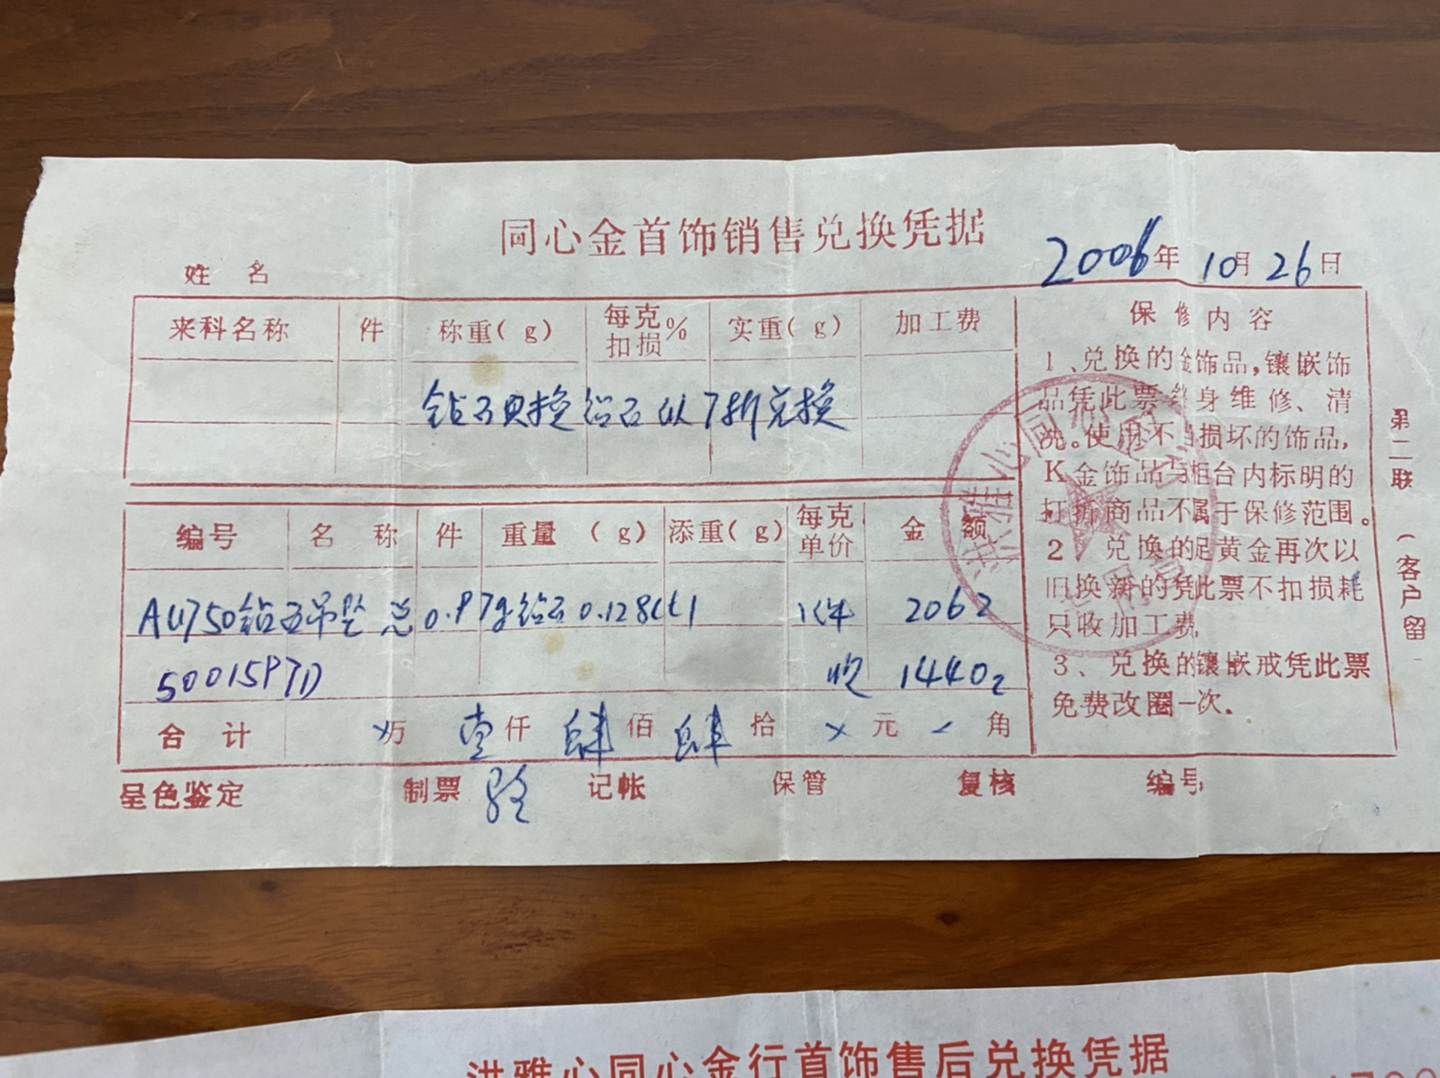 同心金首饰销售兑换凭据
2006年 10月 26日
姓 名
来料名称 件 称重(g) 每克扣损% 实重(g) 加工费
钻石只换钻石以7折兑换
编号 名 称 件 重量 (g) 添重(g) 每克单价 金 额
AU750钻石吊坠 总0.97g钻石0.128ct 1 1件 2062
5001597D 收 1440
合 计 ×万 壹仟 肆佰 肆拾 ×元 角
呈色鉴定 制票 记帐 保管 复核 编号
保修内容
1、兑换的金饰品,镶嵌饰
品凭此票终身维修、清
洗。使用不当损坏的饰品,
K金饰品与柜台内标明的
打折商品不属于保修范围。
2 兑换的足黄金再次以
旧换新的凭此票不扣损耗
只收加工费
3、兑换的镶嵌戒凭此票
免费改圈一次.
第二联(客户留
洪雅心同心
洪雅心同心金行首饰售后兑换凭据